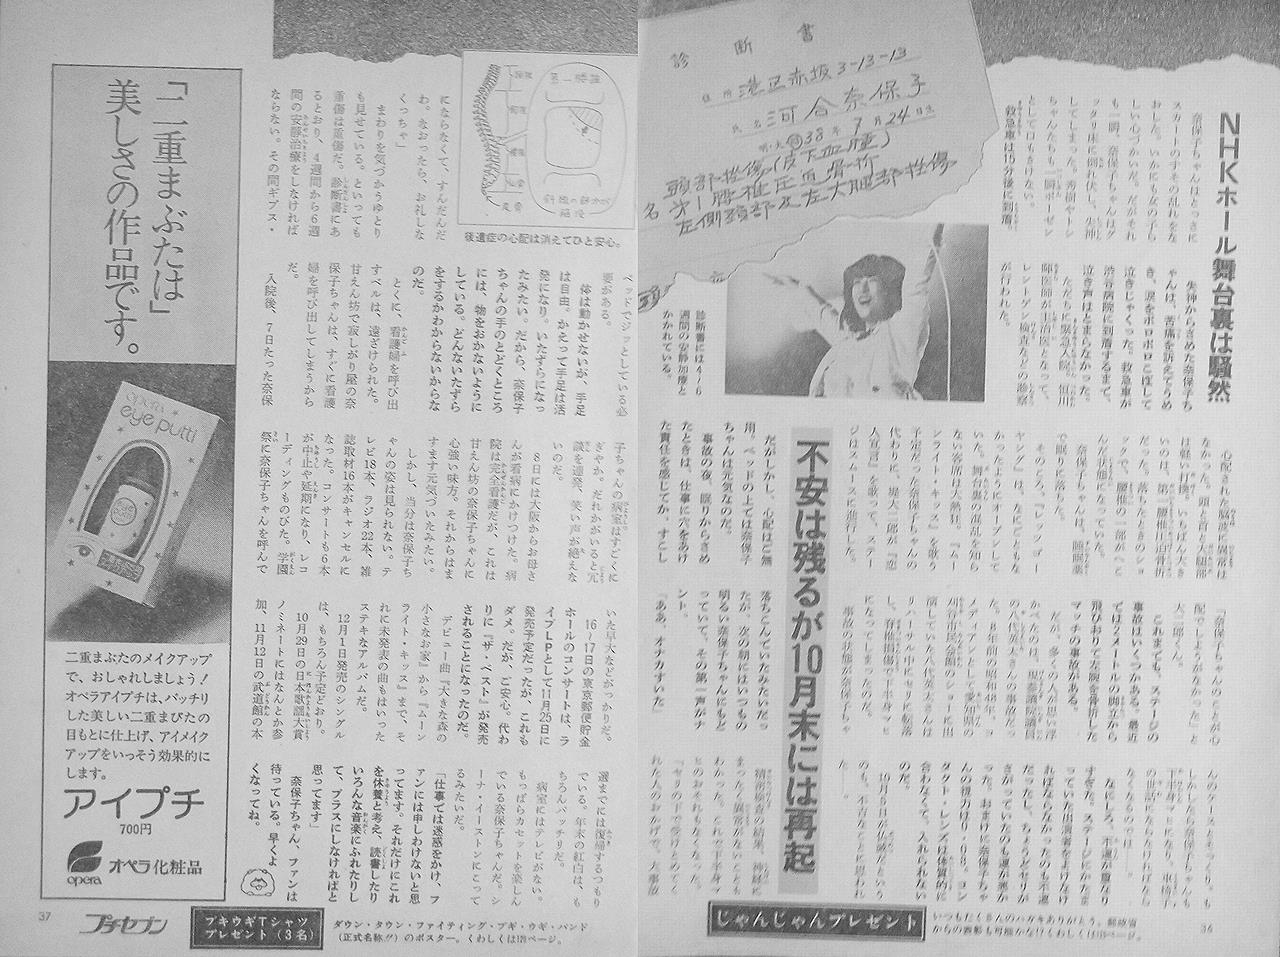 診断書
住所 港区赤坂3-13-13
氏名 河合奈保子
38年7月24日生
病名 頭部挫傷(皮下血腫)
第1腰椎圧迫骨折
左側頭部及左大腿部挫傷
NHKホール舞台裏は騒然
奈保子ちゃんはとっさに
スカートのすその乱れをな
おした。いかにも女の子ら
しい心づかいだ。だがそれ
も一瞬、奈保子ちゃんはグ
ッタリ床に倒れ伏し、失神
してしまった。秀樹やトシ
ちゃんたちも一瞬ボーゼン
として口もきけない。
救急車は15分後に到着。
失神からさめた奈保子ち
ゃんは、苦痛を訴えてうめ
き、涙をポロポロこぼして
泣きじゃくった。救急車が
渋谷病院に到着するまで、
泣き声はとまらなかった。
ただちに緊急入院。恒川
師医師が主治医となって、
レントゲン検査などの診察
が行われた。
診断書には4〜6
週間の安静加療と
かかれている。
心配された脳波に異常は
なかった。頭と首と大腿部
は軽い打撲。いちばん大き
いのは、第一腰椎圧迫骨折
だった。落ちたときのショ
ックで、腰椎の一部がヘこ
んだ状態になっていた。
奈保子ちゃんは、睡眠薬
で眠りに落ちた。
そのころ、『レッツゴー
ヤング』は、なにごともな
かったようにオープンして
いた。舞台裏の混乱を知ら
ない客席は大熱狂。『ムー
ンライト・キッス』を歌う
予定だった奈保子ちゃんの
代わりに、堤大二郎が『恋
人宣言』を歌って、ステー
ジはスムースに進行した。
「奈保子ちゃんのことが心
配でしょうがなかった」と
大二郎くん。
これまでも、ステージの
事故はいくつかある。最近
では2メートルの脚立から
飛びおりて左腕を骨折した
マッチの事故がある。
だが、多くの人が思い浮
かべたのは、現参議院議員
の八代英太さんの事故だっ
た。8年前の昭和48年、コ
メディアンとして愛知県の
刈谷市民会館のショーに出
演していた八代英太さんは
リハーサル中にセリに転落
し、脊椎損傷で下半身マヒ
になってしまった。
事故の状態が奈保子ちゃ
んのケースとそっくり。も
しかしたら奈保子ちゃんも
下半身マヒになり、車椅子
の世話にならなければなら
なくなるのでは……。
なにしろ、不運が重なり
すぎた。ステージにたま
っていた出演者をよけなけ
ればならなかったのも不運
だったし、ちょうどセリが
さがっていたのも運が悪か
った。おまけに奈保子ちゃ
んの視力は0.1・0.8。コン
タクト・レンズは体質的に
合わなくて、入れられない
のだ。
10月5日が仏滅だという
のも、不吉なことに思われ
た……。
不安は残るが10月末には再起
だがしかし、心配はご無
用。ベッドの上では奈保子
ちゃんは元気なのだ。
事故の夜、眠りからさめ
たときは、仕事に穴をあけ
た責任を感じてか、すこし
落ちこんでいたみたいだっ
たが、次の朝にはいつもの
明るい奈保子ちゃんにもど
っていて、その第一声がナ
ント、
「ああ、オナカすいた」
精密検査の結果、神経に
まったく異常がないことも
わかった。これで下半身マ
ヒのおそれもなくなった。
「セリの下で受けとめてく
れた人のおかげで、大事故
じゃんじゃんプレゼント
いつもたくさんのハガキありがとう。
36
後遺症の心配は消えてひと安心。
にならなくて、すんだんだ
わ。なおったら、お礼しな
くっちゃ」
まわりを気づかうゆとり
も見せている。といっても
重傷は重傷だ。診断書にあ
るとおり、4週間から6週
間の安静治療をしなければ
ならない。その間ギプス・
ベッドでジッとしている必
要がある。
体は動かせないが、手足
は自由。かえって手足は活
発になり、いたずらになっ
たみたい。だから、奈保子
ちゃんの手のとどくところ
には、物をおかないように
している。どんないたずら
をするかわからないからな
のだ。
とくに、看護婦を呼び出
すベルは、遠ざけられた。
甘えん坊で寂しがり屋の奈
保子ちゃんは、すぐに看護
婦を呼び出してしまうから
だ。
入院後、7日たった奈保
子ちゃんの病室はすごくに
ぎやか。だれかがいると冗
談を連発、笑い声が絶えな
いのだ。
8日には大阪からお母さ
んが看病にかけつけた。病
院は完全看護だが、これは
甘えん坊の奈保子ちゃんに
心強い味方。それからはま
すます元気づいたみたい。
しかし、当分は奈保子ち
ゃんの姿は見られない。テ
レビ18本、ラジオ22本、雑
誌取材16本がキャンセルに
なった。コンサートも6本
が中止か延期になり、レコ
ーディングものびた。学園
祭に奈保子ちゃんを呼んで
いた早大などがっかりだ。
16〜17日の東京郵便貯金
ホールのコンサートは、ラ
イブLPとして11月25日に
発売予定だったが、これも
ダメ。だが、ご安心。代わ
りに『ザ・ベスト』が発売
されることになったのだ。
デビュー曲『大きな森の
小さなお家』から『ムーン
ライト・キッス』まで、そ
れに未発表の曲もはいった
ステキなアルバムだ。
12月1日発売のシングル
は、もちろん予定どおり。
10月29日の日本歌謡大賞
ノミネートにはなんとか参
加、11月12日の武道館の本
選までには復帰するつもり
でいる。年末の紅白は、も
ちろんバッチリだ。
病室にはテレビがない。
もっぱらカセットを楽しん
でいる奈保子ちゃんだ。シ
ーナ・イーストンにこって
るみたいだ。
「仕事では迷惑をかけ、フ
ァンには申しわけないと思
ってます。それだけにこれ
を休養と考え、読書したり
いろんな音楽にふれたりし
て、プラスにしなければと
思ってます」
奈保子ちゃん、ファンは
待っている。早くよ
くなってね。
「二重まぶたは」
美しさの作品です。
opera
eye putti
二重まぶたのメイクアップ
で、おしゃれしましょう!
オペラアイプチは、パッチリ
した美しい二重まびたの
目もとに仕上げ、アイメイク
アップをいっそう効果的に
します。
アイプチ
700円
opera
オペラ化粧品
37
プチセブン
ブギウギTシャツ
プレゼント(3名)
ダウン・タウン・ファイティング・ブギ・ウギ・バンド
(正式名称!!)のポスター。